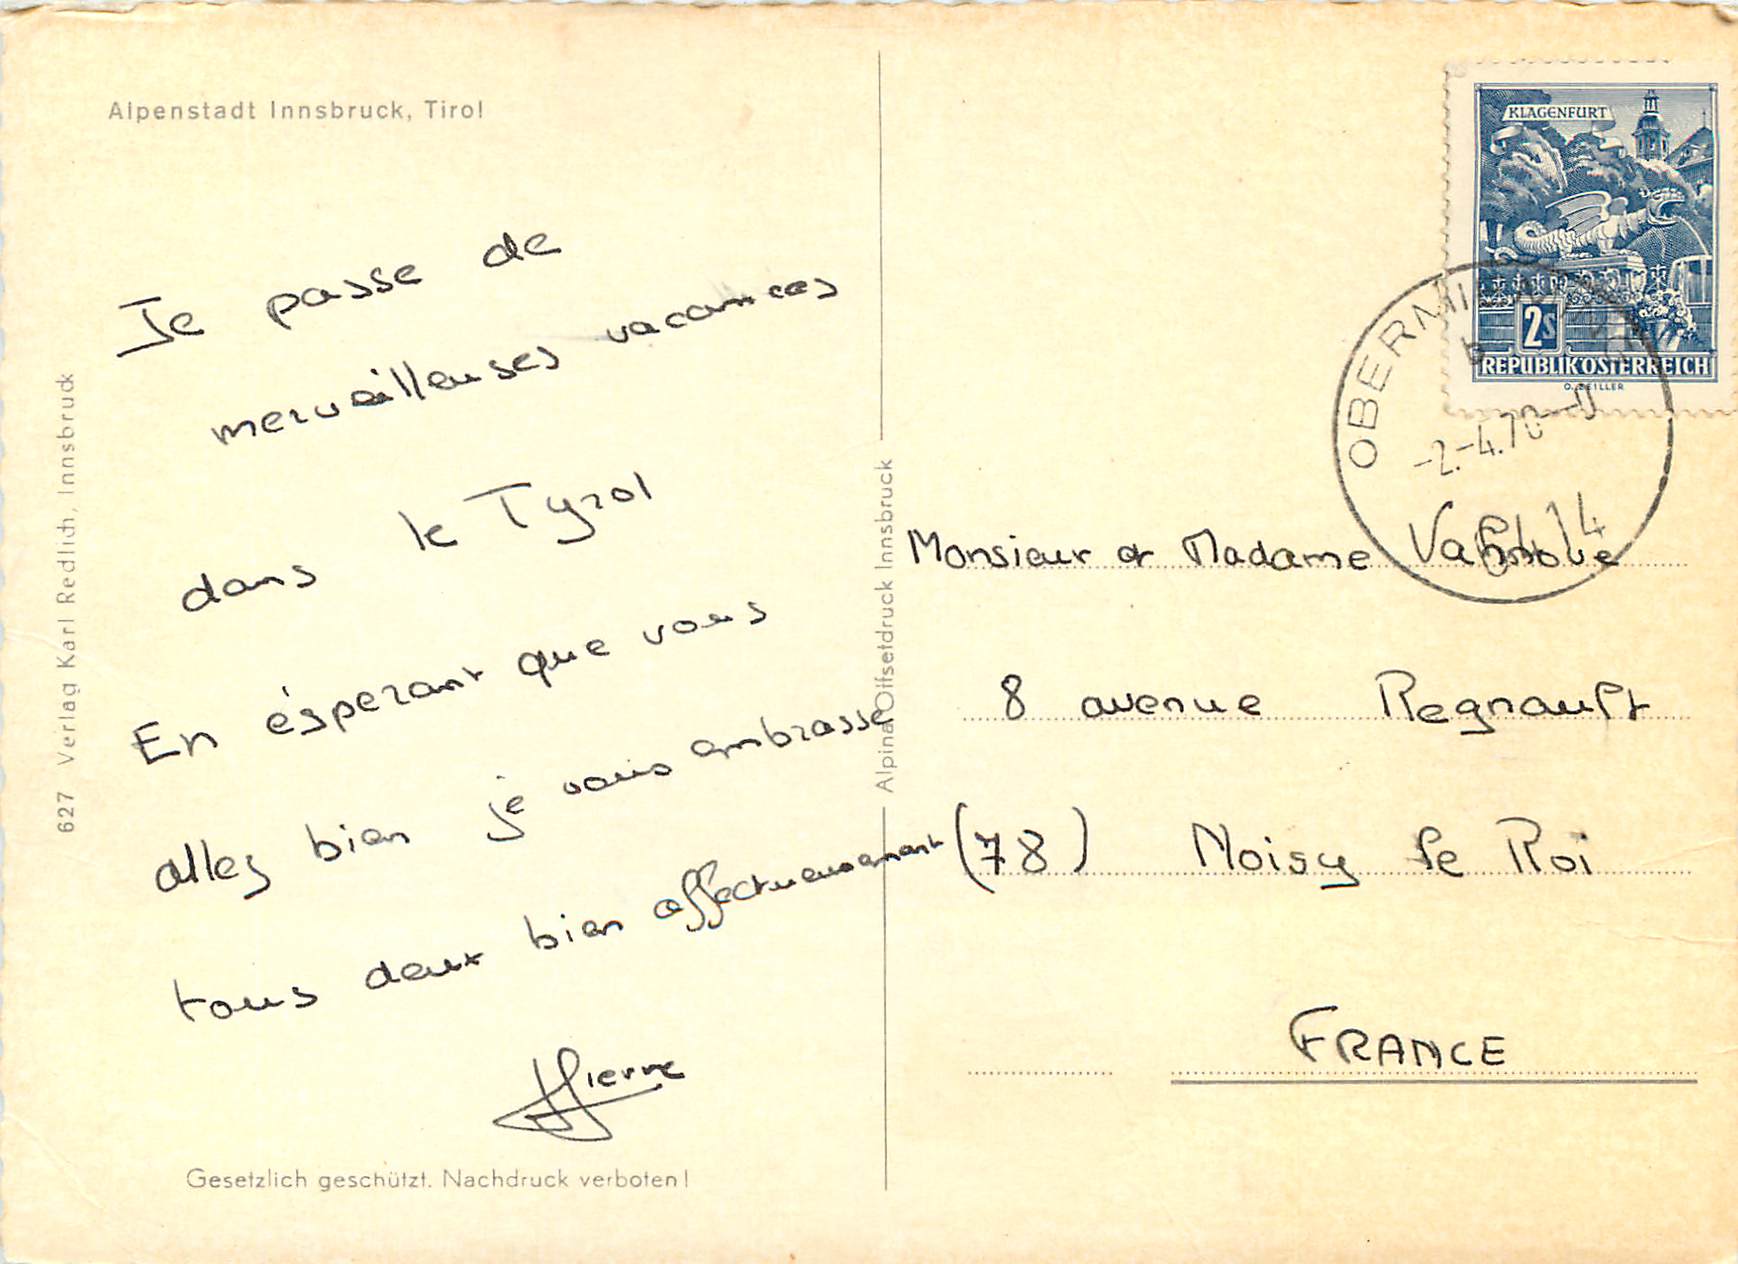 Alpenstadt Innsbruck, Tirol
Je passe de
merveilleuses vacances
dans le Tyrol
En éspérant que vous
allez bien je vous embrasse
tous deux bien affectueusement
Pierre
Gesetzlich geschützt. Nachdruck verboten!
627 Verlag Karl Redlich, Innsbruck
Alpina Offsetdruck Innsbruck
KLAGENFURT
2S
REPUBLIK ÖSTERREICH
O. ZEILLER
-2.-4.70
6414
Monsieur et Madame
8 avenue Regnault
(78) Noisy le Roi
FRANCE